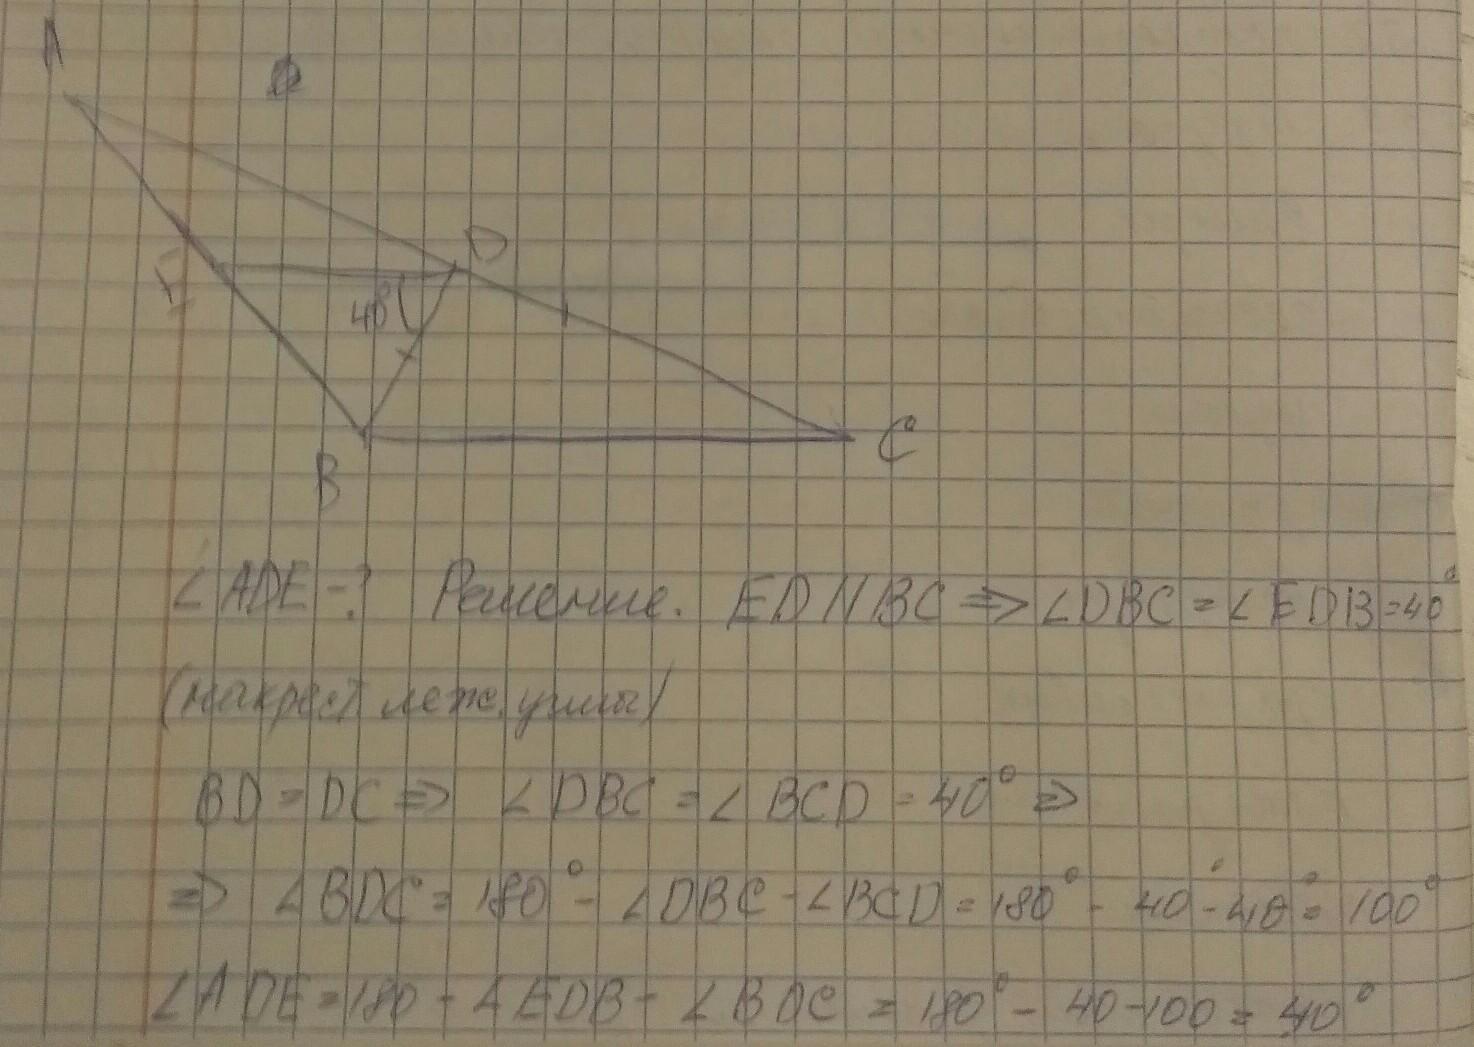 A
D
E
40
B
C
∠ADE-? Решение. ED || BC ⇒ ∠DBC = ∠EDB = 40°
(накрест леж. углы)
BD = DC ⇒ ∠DBC = ∠BCD = 40° ⇒
⇒ ∠BDC = 180° - ∠DBC - ∠BCD = 180° - 40° - 40° = 100°
∠ADE = 180 - ∠EDB - ∠BDC = 180° - 40 - 100 = 40°